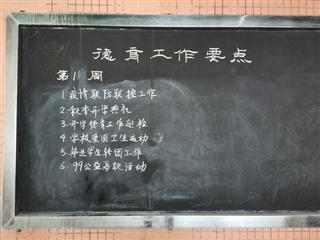 德育工作要点
第1周
1.疫情联防联控工作
2.秋季开学典礼
3.开学德育工作巡检
4.学校爱国卫生运动
5.毕业学生转团工作
6.99公益募款活动